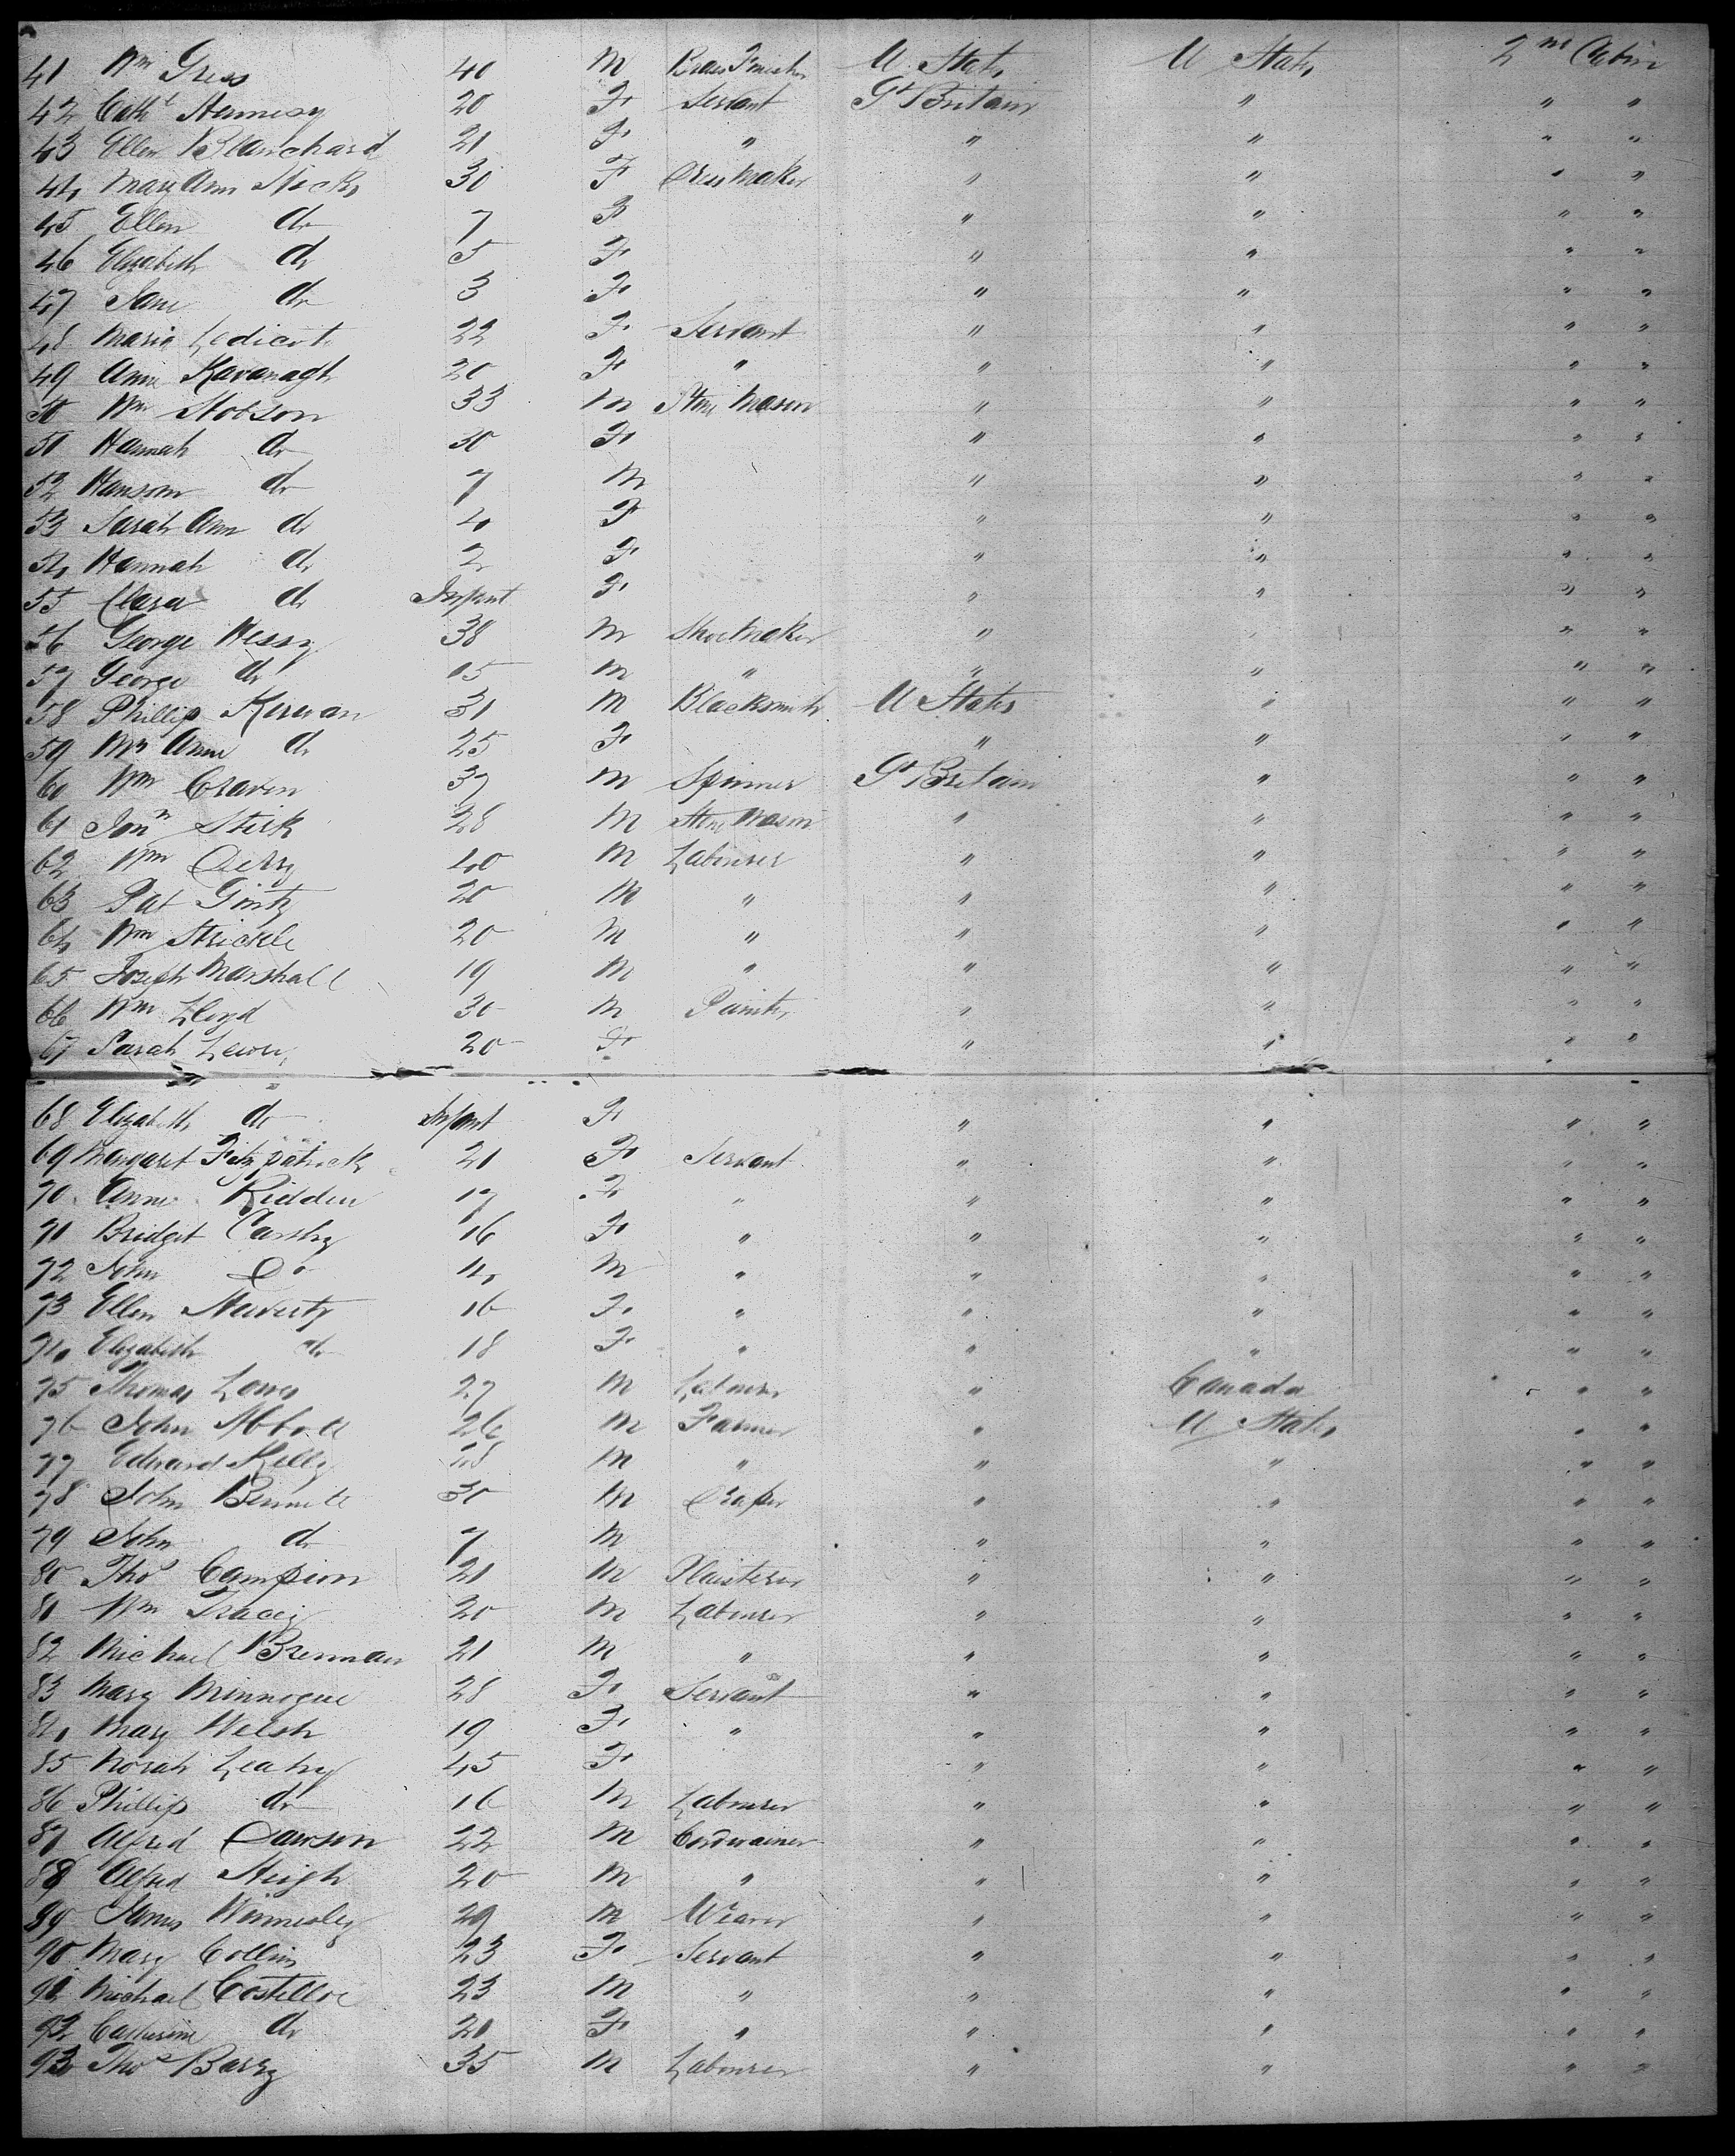 41 Wm Gress 40 M Brass Finisher U. States U States 2nd Cabin
42 Cath Hennesy 20 F Servant Gt Britain " " "
43 Ellen Blanchard 21 F " " " " "
44 Mary Ann Hicks 30 F Dress Maker " " " "
45 Ellen do 7 F " " " "
46 Elizabeth do 5 F " " " "
47 Jane do 3 F " " " "
48 Maria 22 F Servant " " " "
49 Anne Kavanagh 20 F " " " " "
50 Wm Hobson 33 M Stone Mason " " " "
51 Hannah do 30 F " " " "
52 Hansom do 7 M " " " "
53 Sarah Ann do 4 F " " " "
54 Hannah do 2 F " " " "
55 Clara do Infant F " " " "
56 George Hessy 38 M Shoe Maker " " " "
57 George do 15 M " " " " "
58 Phillip Kerwan 31 M Blacksmith U States " " "
59 Mrs Anne do 25 F " " " "
60 Wm Craven 37 M Spinner Gt Britain " " "
61 Jonn Stirk 28 M Stone Mason " " " "
62 Wm 40 M Labourer " " " "
63 Pat 20 M " " " " "
64 Wm Strickle 20 M " " " " "
65 Joseph Marshall 19 M " " " " "
66 Wm Lloyd 30 M Painter " " " "
67 Sarah 20 F " " " "
68 Elizabeth do Infant F " " " "
69 Margaret Fitzpatrick 21 F Servant " " " "
70 Anne Kidden 17 F " " " " "
71 Bridget Carthy 16 F " " " " "
72 John Do 4 M " " " " "
73 Ellen 16 F " " " " "
74 Elizabeth do 18 F " " " " "
75 Thomas 27 M Labourer " Canada " "
76 John Abbott 26 M Farmer " U States " "
77 Edward Kelly 28 M " " " " "
78 John Bennett 30 M Draper " " " "
79 John do 7 M " " " "
80 Thos Campion 21 M Plaisterer " " " "
81 Wm Tracey 20 M Labourer " " " "
82 Michael Brennan 21 M " " " " "
83 Mary Minnogue 28 F Servant " " " "
84 Mary Welsh 19 F " " " " "
85 Norah Leahy 45 F " " " "
86 Phillip do 16 M Labourer " " " "
87 Alfred Dawson 22 M Cordwainer " " " "
88 Alfred Heigh 20 M " " " " "
89 James 29 M Weaver " " " "
90 Mary Collins 23 F Servant " " " "
91 Michael Costelloe 23 M " " " " "
92 Catherine do 20 F " " " " "
93 Thos Barry 35 M Labourer " " " "